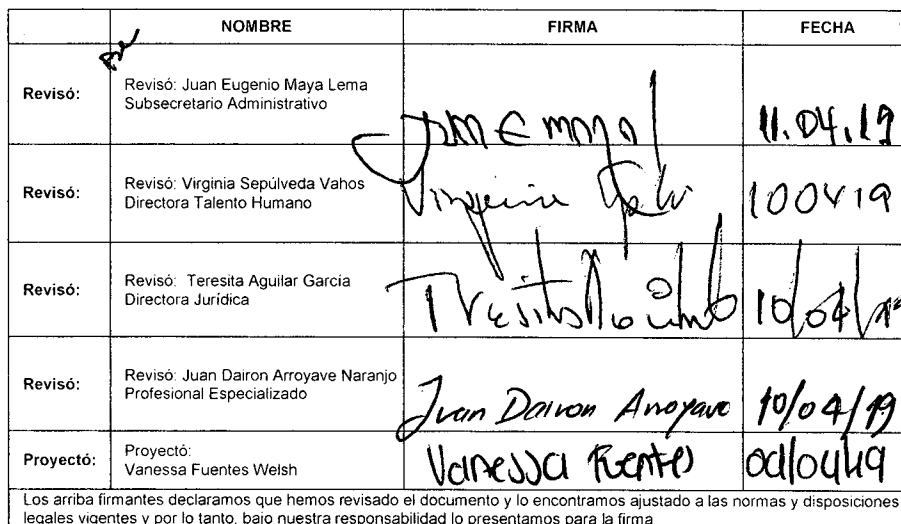 NOMBRE FIRMA FECHA
Revisó: Revisó: Juan Eugenio Maya Lema
Subsecretario Administrativo
Juan E maya 11.04.19
Revisó: Revisó: Virginia Sepúlveda Vahos
Directora Talento Humano
Virginia 100419
Revisó: Revisó: Teresita Aguilar García
Directora Jurídica
Teresita 10/04/19
Revisó: Revisó: Juan Dairon Arroyave Naranjo
Profesional Especializado
Juan Dairon Arroyave 10/04/19
Proyectó: Proyectó:
Vanessa Fuentes Welsh
Vanessa Fuentes
Los arriba firmantes declaramos que hemos revisado el documento y lo encontramos ajustado a las normas y disposiciones
legales vigentes y por lo tanto, bajo nuestra responsabilidad lo presentamos para la firma